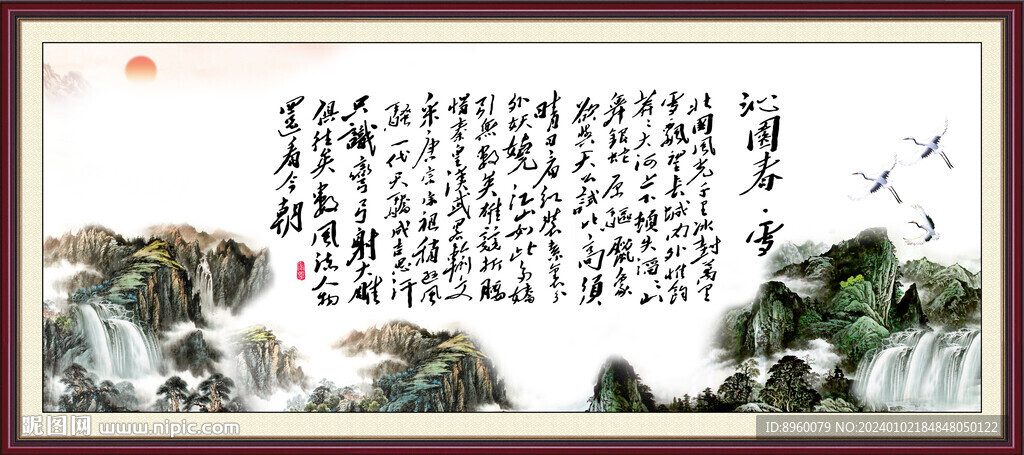 沁園春 雪
北國風光千里冰封萬里
雪飄望長城內外惟餘
莽々大河上下頓失滔々山
舞銀蛇原驅臘象
欲與天公試比高須
晴日看紅裝素裹分
外妖嬈江山如此多嬌
引無數英雄競折腰
惜秦皇漢武略輸文
采唐宗宋祖稍遜風
騷一代天驕成吉思汗
只識彎弓射大雕
俱往矣數風流人物
還看今朝
昵图网 www.nipic.com
ID:8960079 NO:20240102184848050122